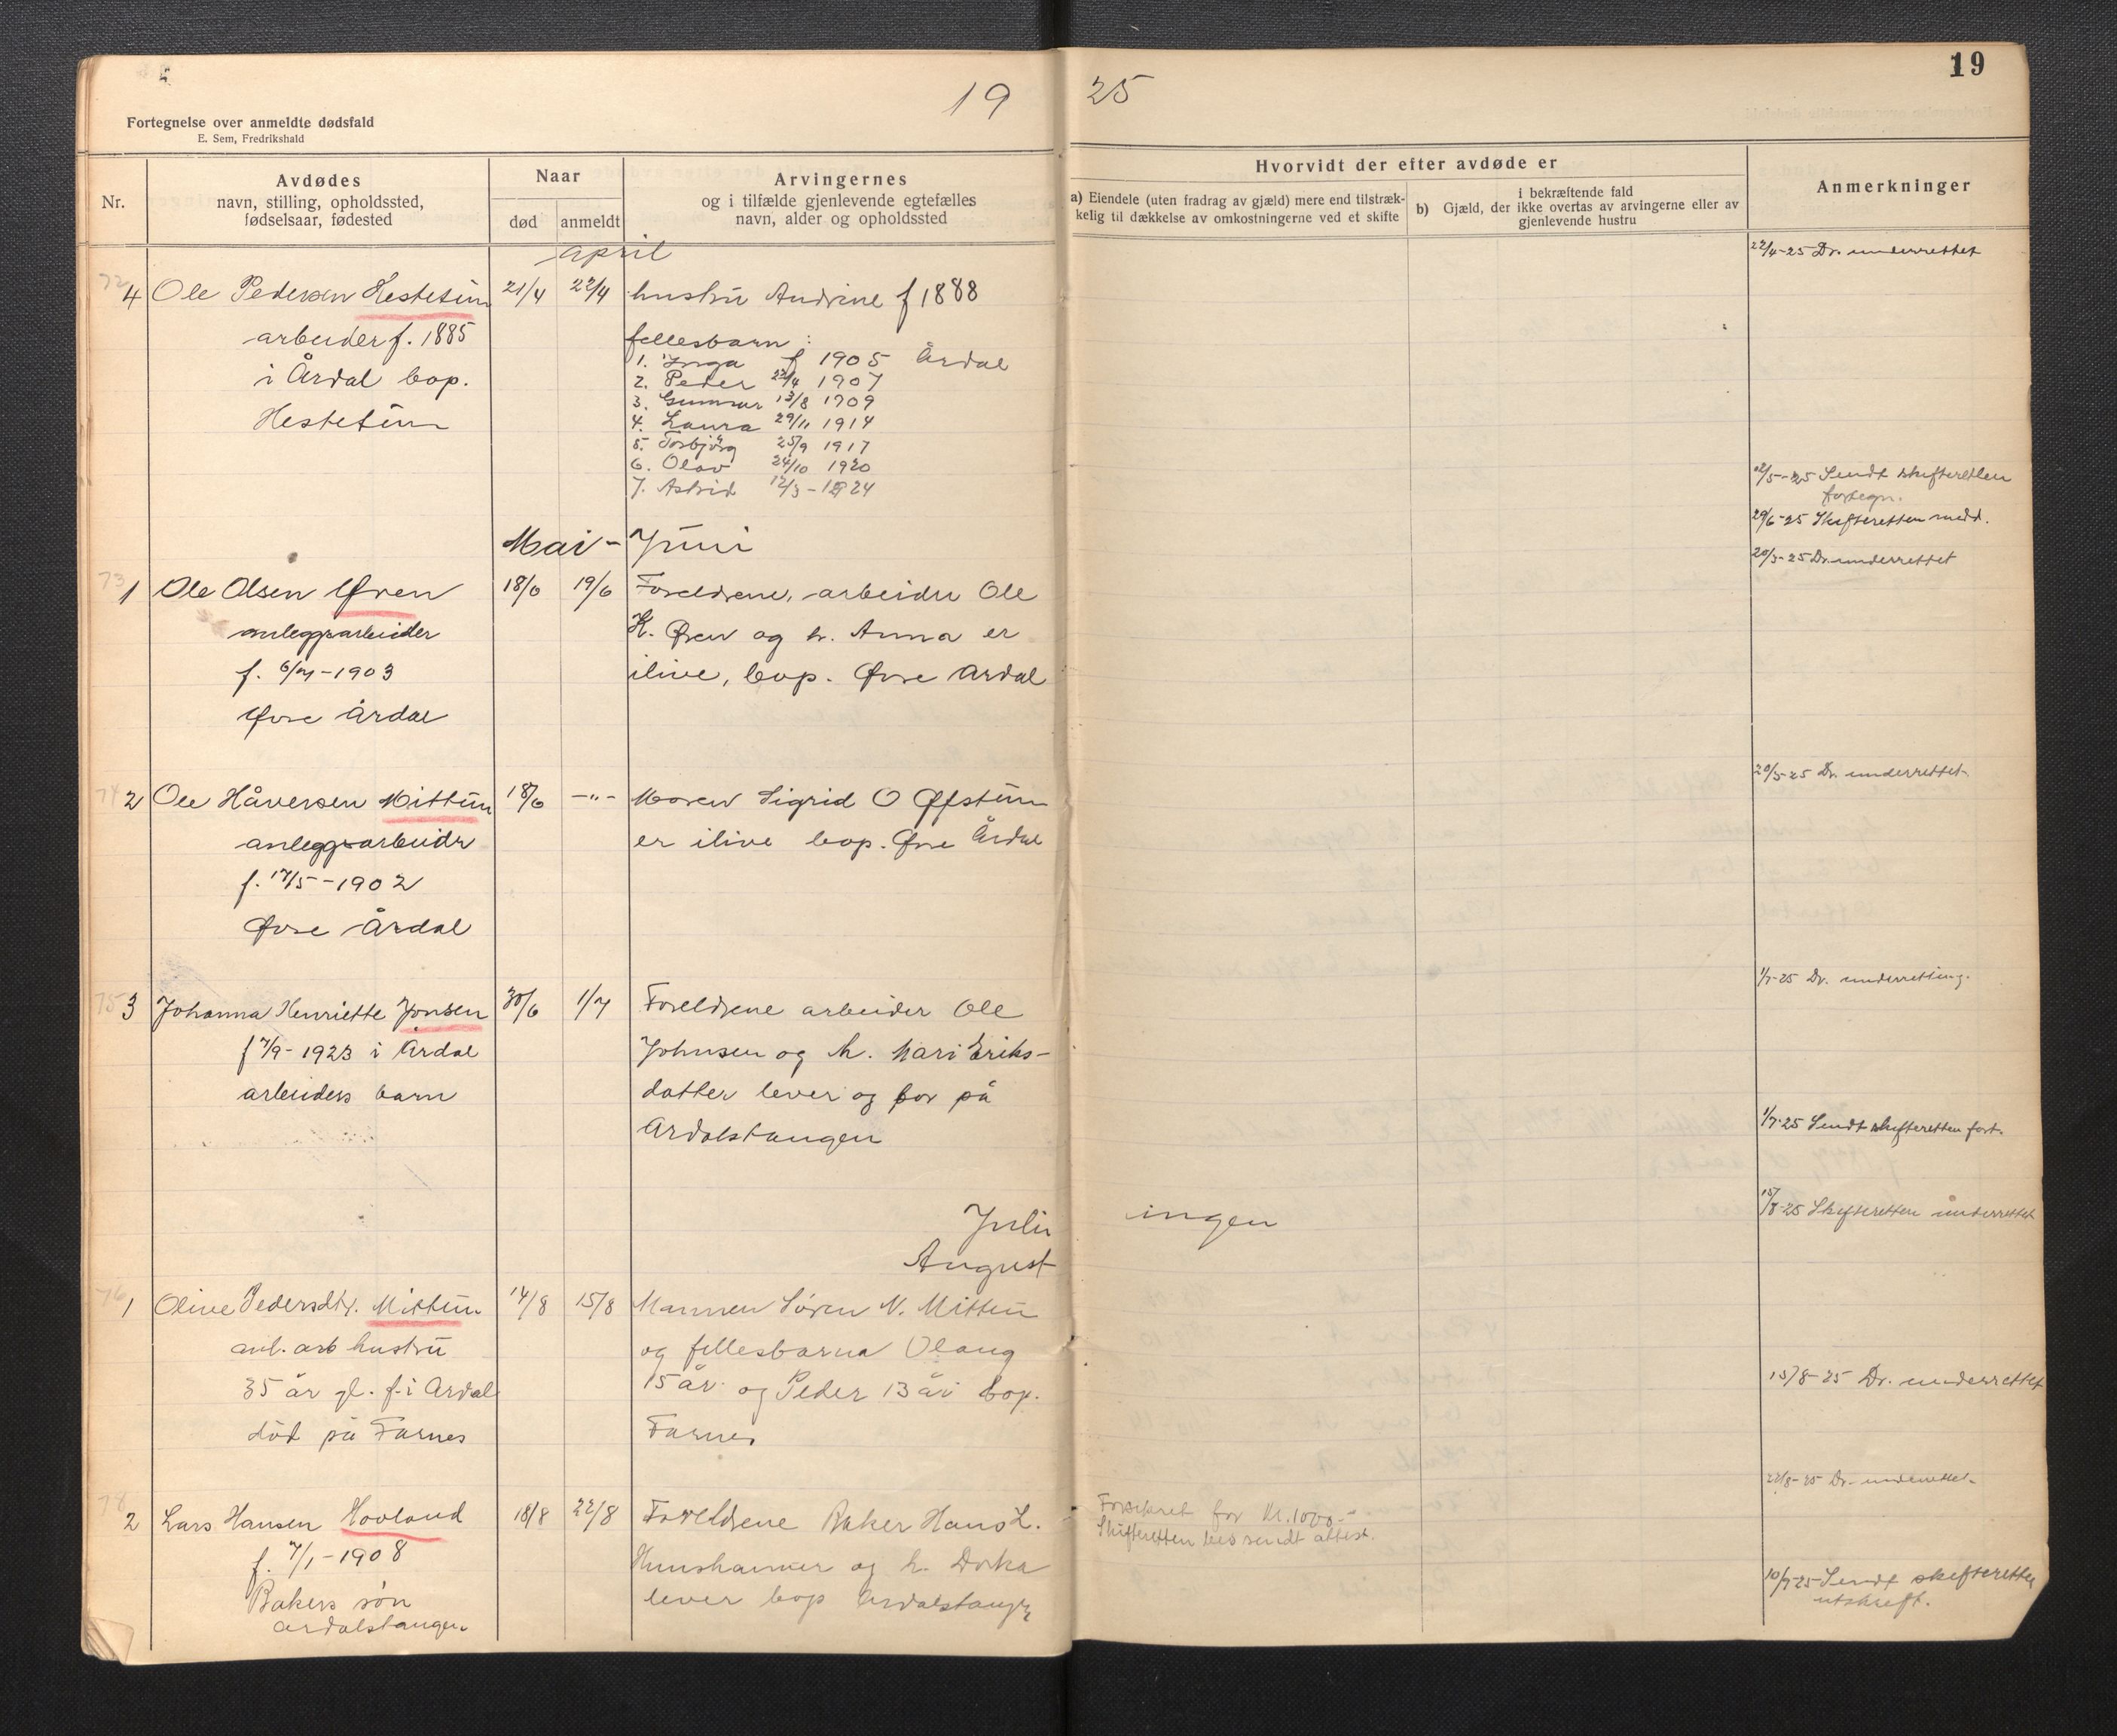 19 25
19
Fortegnelse over anmeldte dødsfald
E. Sem, Fredrikshald
Nr.
Avdødes
navn, stilling, opholdssted,
fødselsaar, fødested
Naar
død
anmeldt
Arvingernes
og i tilfælde gjenlevende egtefælles
navn, alder og opholdssted
Hvorvidt der efter avdøde er
a) Eiendele (uten fradrag av gjæld) mere end tilstræk-
kelig til dækkelse av omkostningerne ved et skifte
i bekræftende fald
b) Gjæld, der ikke overtas av arvingerne eller av
gjenlevende hustru
Anmerkninger
april
72
4 Ole Pedersen Hestetun
arbeider f. 1885
i Årdal bop.
Hestetun
21/4 22/4
hustru Andrine f 1888
fellesbarn :
1. Inga f 1905 Årdal
2. Peder 22/4 1907
3. Gunnar 13/8 1909
4. Laura 29/11 1914
5. Torbjørg 25/9 1917
6. Olav 24/10 1920
7. Astrid 12/3 - 1924
22/4-25 Dr. underrettet
2/5-25 Sendt skifteretten
fortegn.
29/6-25 Skifteretten medd.
Mai - Juni
73
1 Ole Olsen Øren
anleggsarbeider
f. 6/7-1903
Øvre Årdal
18/6 19/6
Foreldrene, arbeider Ole
K. Øren og h. Anna er
ilive, bop. Øvre Årdal
20/5-25 Dr. underrettet
74
2 Ole Håversen Mittun
anleggsarbeider
f. 17/5-1902
Øvre Årdal
18/6 -"-
Moren Sigrid O Offstun
er ilive bop. Øvre Årdal
20/5-25 Dr. underrettet
75
3 Johanna Henriette Jonsen
f 7/9-1923 i Årdal
arbeiders barn
30/6 1/7
Foreldrene arbeider Ole
Johnsen og h. Mari Eriks-
datter lever og bor på
Årdalstangen
1/7-25 Dr. underretting.
1/7-25 Sendt skifteretten fort.
Juli ingen
August
15/8-25 Skifteretten underrettet
76
1 Olive Pedersdtr. Mittun
anl. arb hustru
35 år gl. f. i Årdal
død på Farnes
14/8 15/8
Mannen Søren N. Mittun
og fellesbarna Olaug
15 år og Peder 13 år bop.
Farnes
15/8-25 Dr. underrettet
78
2 Lars Hansen Hovland
f. 7/1-1908
Bakers søn
Årdalstangen
18/8 22/8
Foreldrene Baker Hans L.
og h. Dorka
lever bop Årdalstangen
Forsikret for kr. 1000.-
Skifteretten sendt attest.
22/8-25 Dr. underrettet.
10/9-25 Sendt skifteretten
utskrift.